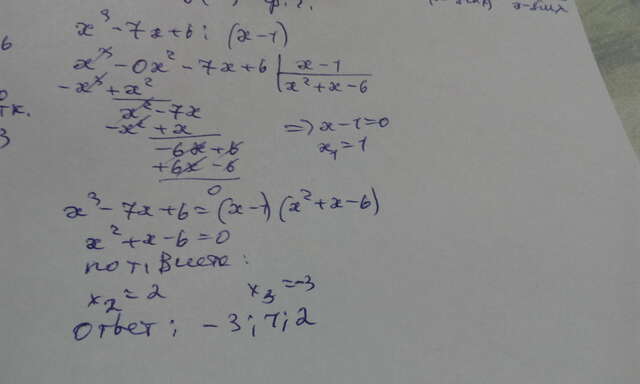 x³ - 7x + 6 : (x - 1)
x³ - 0x² - 7x + 6 | x - 1
- x³ + x² | x² + x - 6
x² - 7x
- x² + x
- 6x + 6
+ 6x - 6
0
=> x - 1 = 0
x₁ = 1
x³ - 7x + 6 = (x - 1)(x² + x - 6)
x² + x - 6 = 0
по т. Виета:
x₂ = 2 x₃ = -3
Ответ: -3; 1; 2